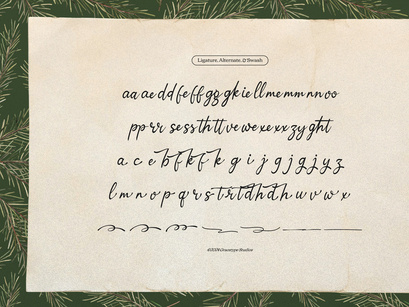 Ligature, Alternate, & Swash
aa ae dd fe ff gg gk ie ll me mm nn oo
pp rr se ss th tt ve we xe xx zy ght
a c e b f k f k g i j g j g j y z
l m n o p q r s t r t d h d h u v w x